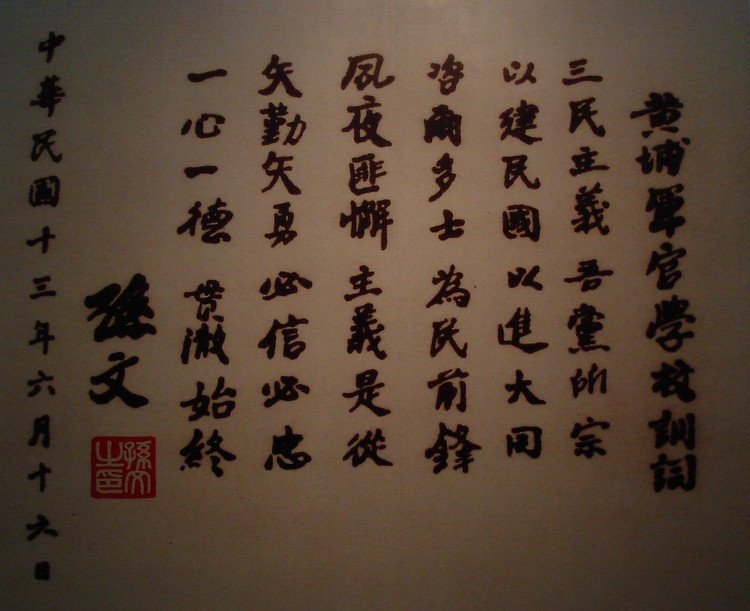 黄埔軍官學校訓詞
三民主義 吾黨所宗
以建民國 以進大同
咨爾多士 為民前鋒
夙夜匪懈 主義是從
矢勤矢勇 必信必忠
一心一德 貫澈始終
孫文
孫文之印
中華民國十三年六月十六日